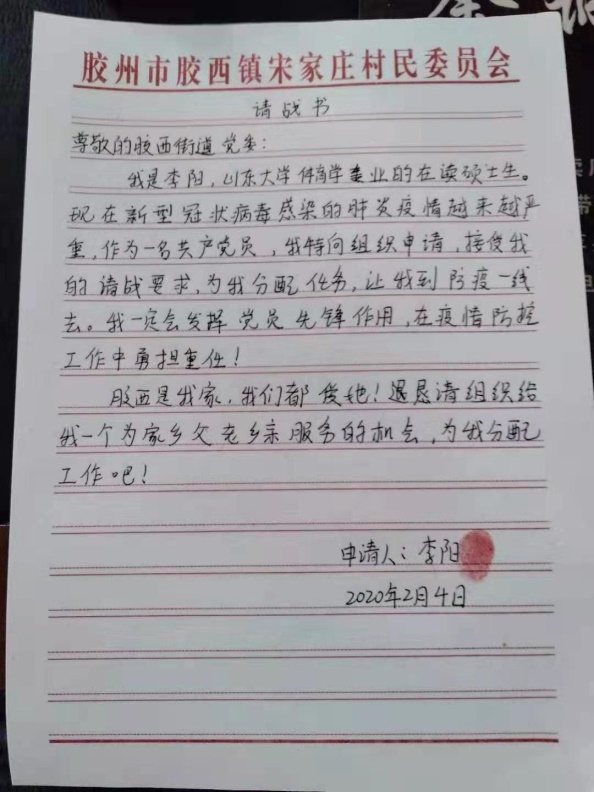 胶州市胶西镇宋家庄村民委员会
请战书
尊敬的胶西街道党委：
我是李阳，山东大学体育学专业的在读硕士生。
现在新型冠状病毒感染的肺炎疫情越来越严
重，作为一名共产党员，我特向组织申请，接受我
的请战要求，为我分配任务，让我到防疫一线
去。我一定会发挥党员先锋作用，在疫情防控
工作中勇担重任！
胶西是我家，我们都爱她！恳请组织给
我一个为家乡父老乡亲服务的机会，为我分配
工作吧！
申请人：李阳
2020年2月4日